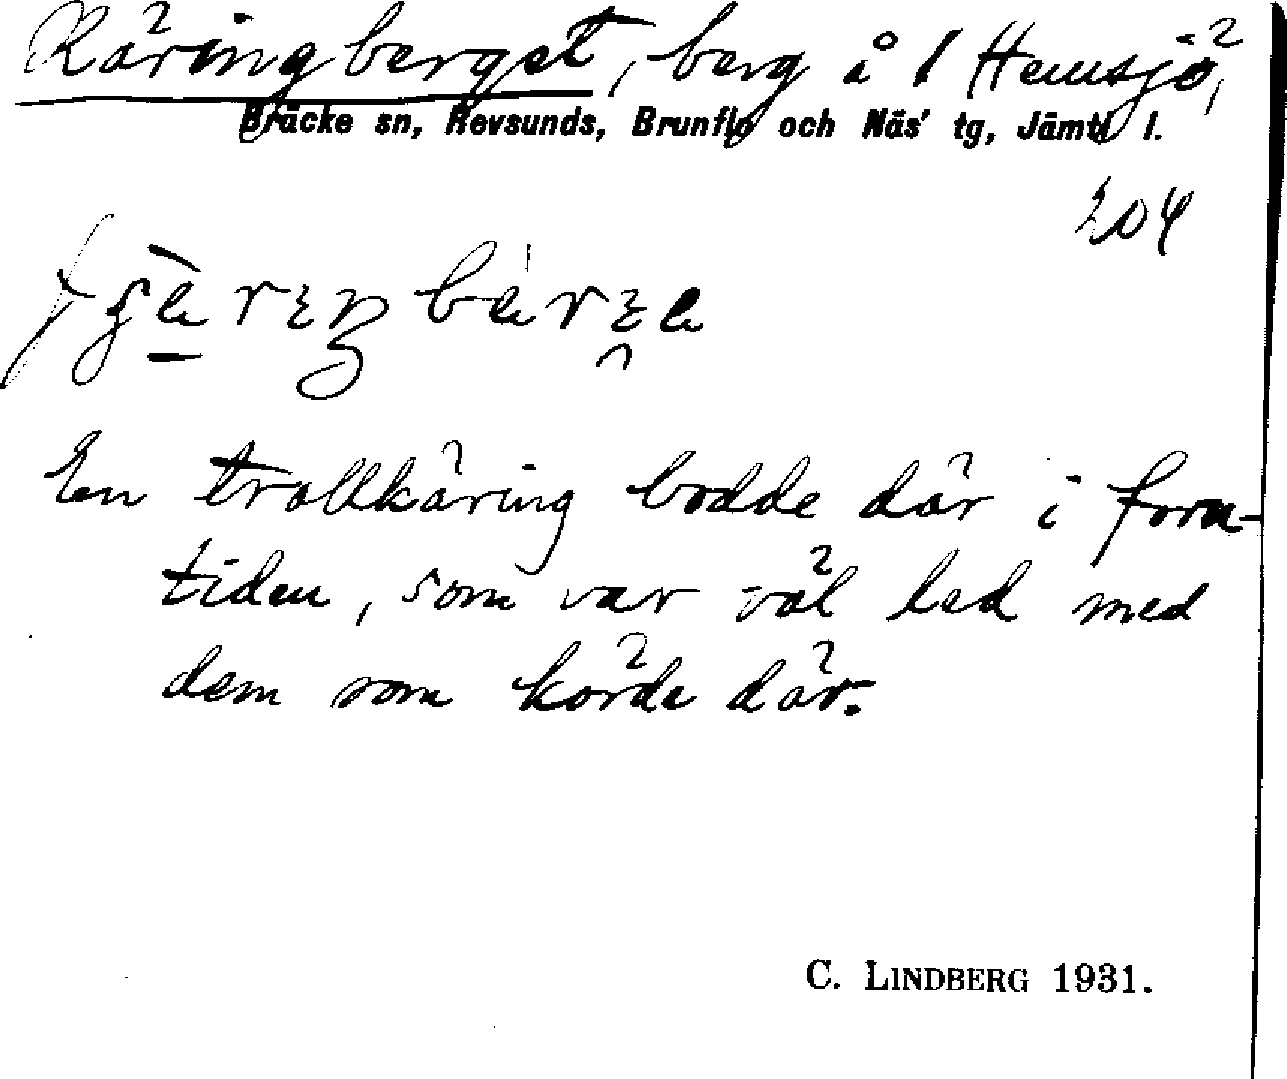 Käringberget, berg å 1 Hemsjö,
Bräcke sn, Revsunds, Brunflo och Näs' tg, Jämtl l.
204
En trollkäring bodde där i forn-
tiden, som var väl led med
dem som körde där.
C. LINDBERG 1931.